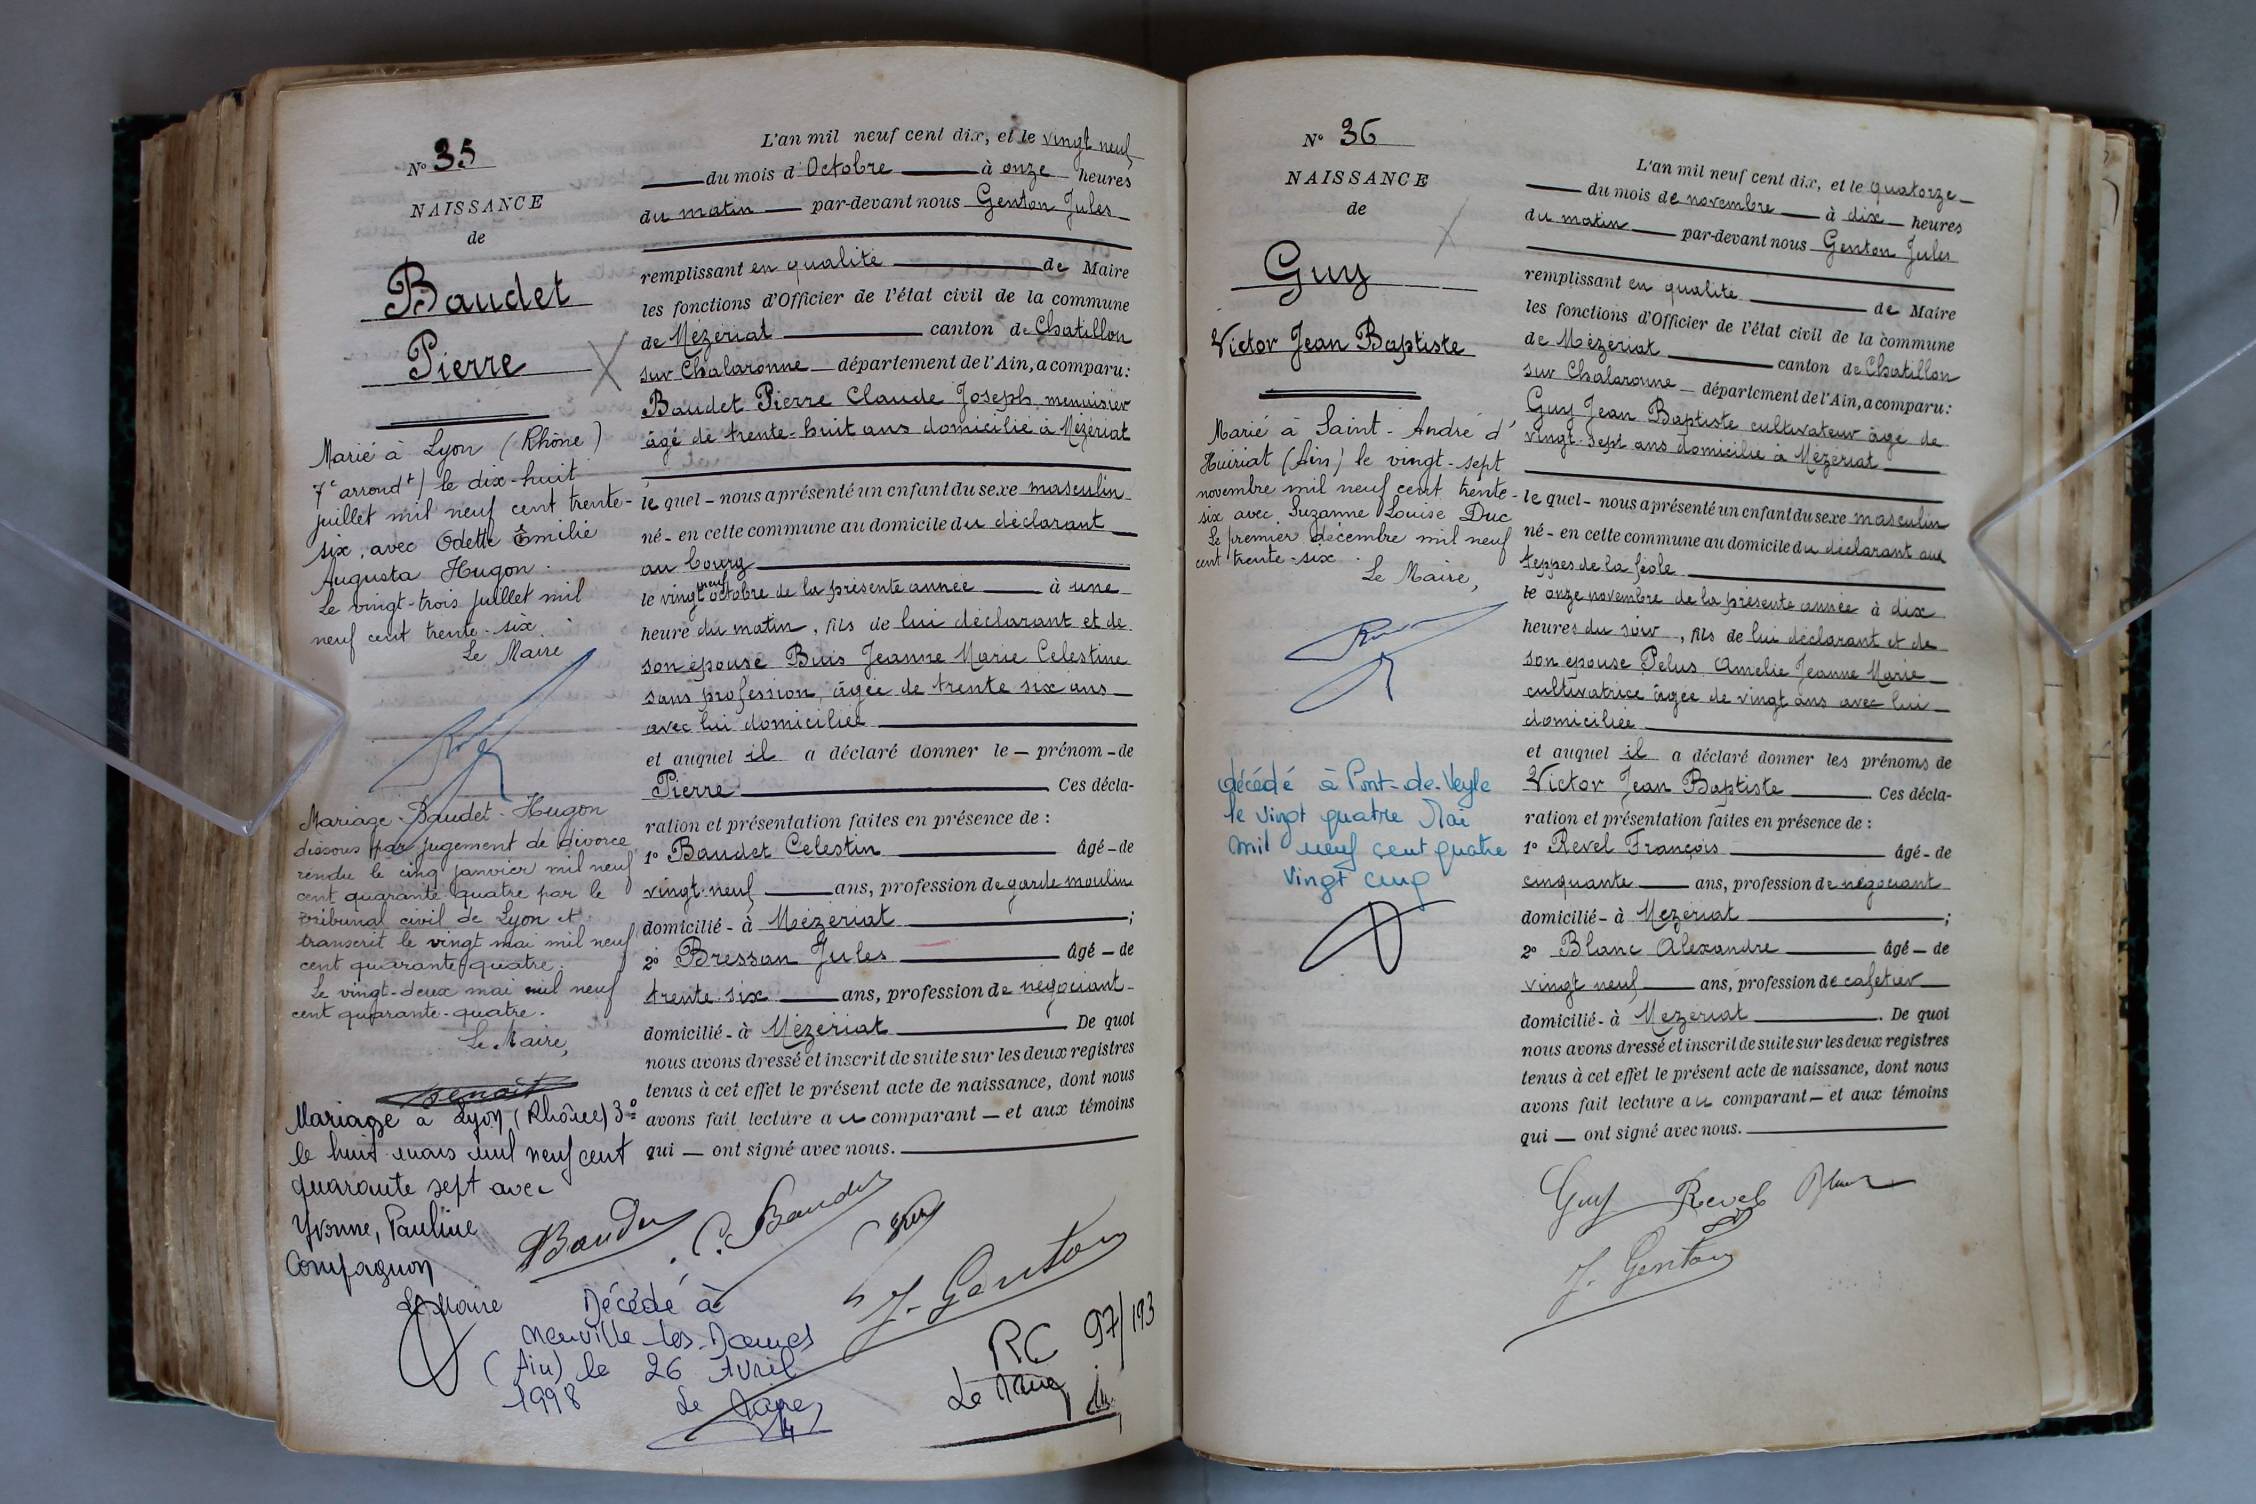 N° 35
NAISSANCE
de
Baudet
Pierre
Marié à Lyon (Rhône)
7e arrondt) le dix-huit
juillet mil neuf cent trente-
six, avec Odette Emilie
Augusta Hugon.
Le vingt-trois juillet mil
neuf cent trente-six.
Le Maire
Mariage Baudet-Hugon
dissous par jugement de divorce
rendu le cinq janvier mil neuf
cent quarante quatre par le
tribunal civil de Lyon et
transcrit le vingt mai mil neuf
cent quarante quatre.
Le vingt-deux mai mil neuf
cent quarante-quatre.
Le Maire,
Benoît
Mariage a Lyon (Rhône) 3e
le huit mars mil neuf cent
quarante sept avec
Yvonne, Pauline
Compagnon
Le Maire
L'an mil neuf cent dix, et le vingt neuf
du mois d'Octobre à onze heures
du matin par-devant nous Genton Jules
remplissant en qualité de Maire
les fonctions d'Officier de l'état civil de la commune
de Mézériat canton de Chatillon
sur Chalaronne département de l'Ain, a comparu:
Baudet Pierre Claude Joseph menuisier
âgé de trente-huit ans domicilié à Mézériat
le quel - nous a présenté un enfant du sexe masculin
né - en cette commune au domicile du déclarant
au bourg
le vingt neuf octobre de la présente année à une
heure du matin, fils de lui déclarant et de
son épouse Buis Jeanne Marie Celestine
sans profession, âgée de trente six ans
avec lui domiciliée
et auquel il a déclaré donner le - prénom - de
Pierre Ces décla-
ration et présentation faites en présence de :
1° Baudet Celestin âgé - de
vingt-neuf ans, profession de garde moulin
domicilié - à Mézériat ;
2° Bressan Jules âgé - de
trente-six ans, profession de négociant
domicilié - à Mézériat De quoi
nous avons dressé et inscrit de suite sur les deux registres
tenus à cet effet le présent acte de naissance, dont nous
avons fait lecture au comparant - et aux témoins
qui - ont signé avec nous.
Baudet C. Baudet
J. Genton
Décédé à
Neuville-les-Dames
(Ain) le 26 Avril
1998
Le Maire
RC 97/193
Le Maire
N° 36
NAISSANCE
de
Guy
Victor Jean Baptiste
Marié à Saint-André d'
Huiriat (Ain) le vingt-sept
novembre mil neuf cent trente-
six avec Suzanne Louise Duc
Le premier décembre mil neuf
cent trente-six.
Le Maire,
décédé à Pont-de-Veyle
le vingt quatre Mai
mil neuf cent quatre
vingt cinq
L'an mil neuf cent dix, et le quatorze
du mois de novembre à dix heures
du matin par-devant nous Genton Jules
remplissant en qualité de Maire
les fonctions d'Officier de l'état civil de la commune
de Mézériat canton de Chatillon
sur Chalaronne - département de l'Ain, a comparu:
Guy Jean Baptiste cultivateur âgé de
vingt-sept ans domicilié à Mézériat
le quel - nous a présenté un enfant du sexe masculin
né - en cette commune au domicile du déclarant aux
teppes de la féole
le onze novembre de la présente année à dix
heures du soir, fils de lui déclarant et de
son épouse Pelus Amélie Jeanne Marie
cultivatrice âgée de vingt ans avec lui
domiciliée
et auquel il a déclaré donner les prénoms de
Victor Jean Baptiste Ces décla-
ration et présentation faites en présence de :
1° Revel François âgé - de
cinquante ans, profession de négociant
domicilié - à Mézériat ;
2° Blanc Alexandre âgé - de
vingt neuf ans, profession de cafetier
domicilié - à Mézériat. De quoi
nous avons dressé et inscrit de suite sur les deux registres
tenus à cet effet le présent acte de naissance, dont nous
avons fait lecture au comparant - et aux témoins
qui - ont signé avec nous.
Guy Revel Blanc
J. Genton